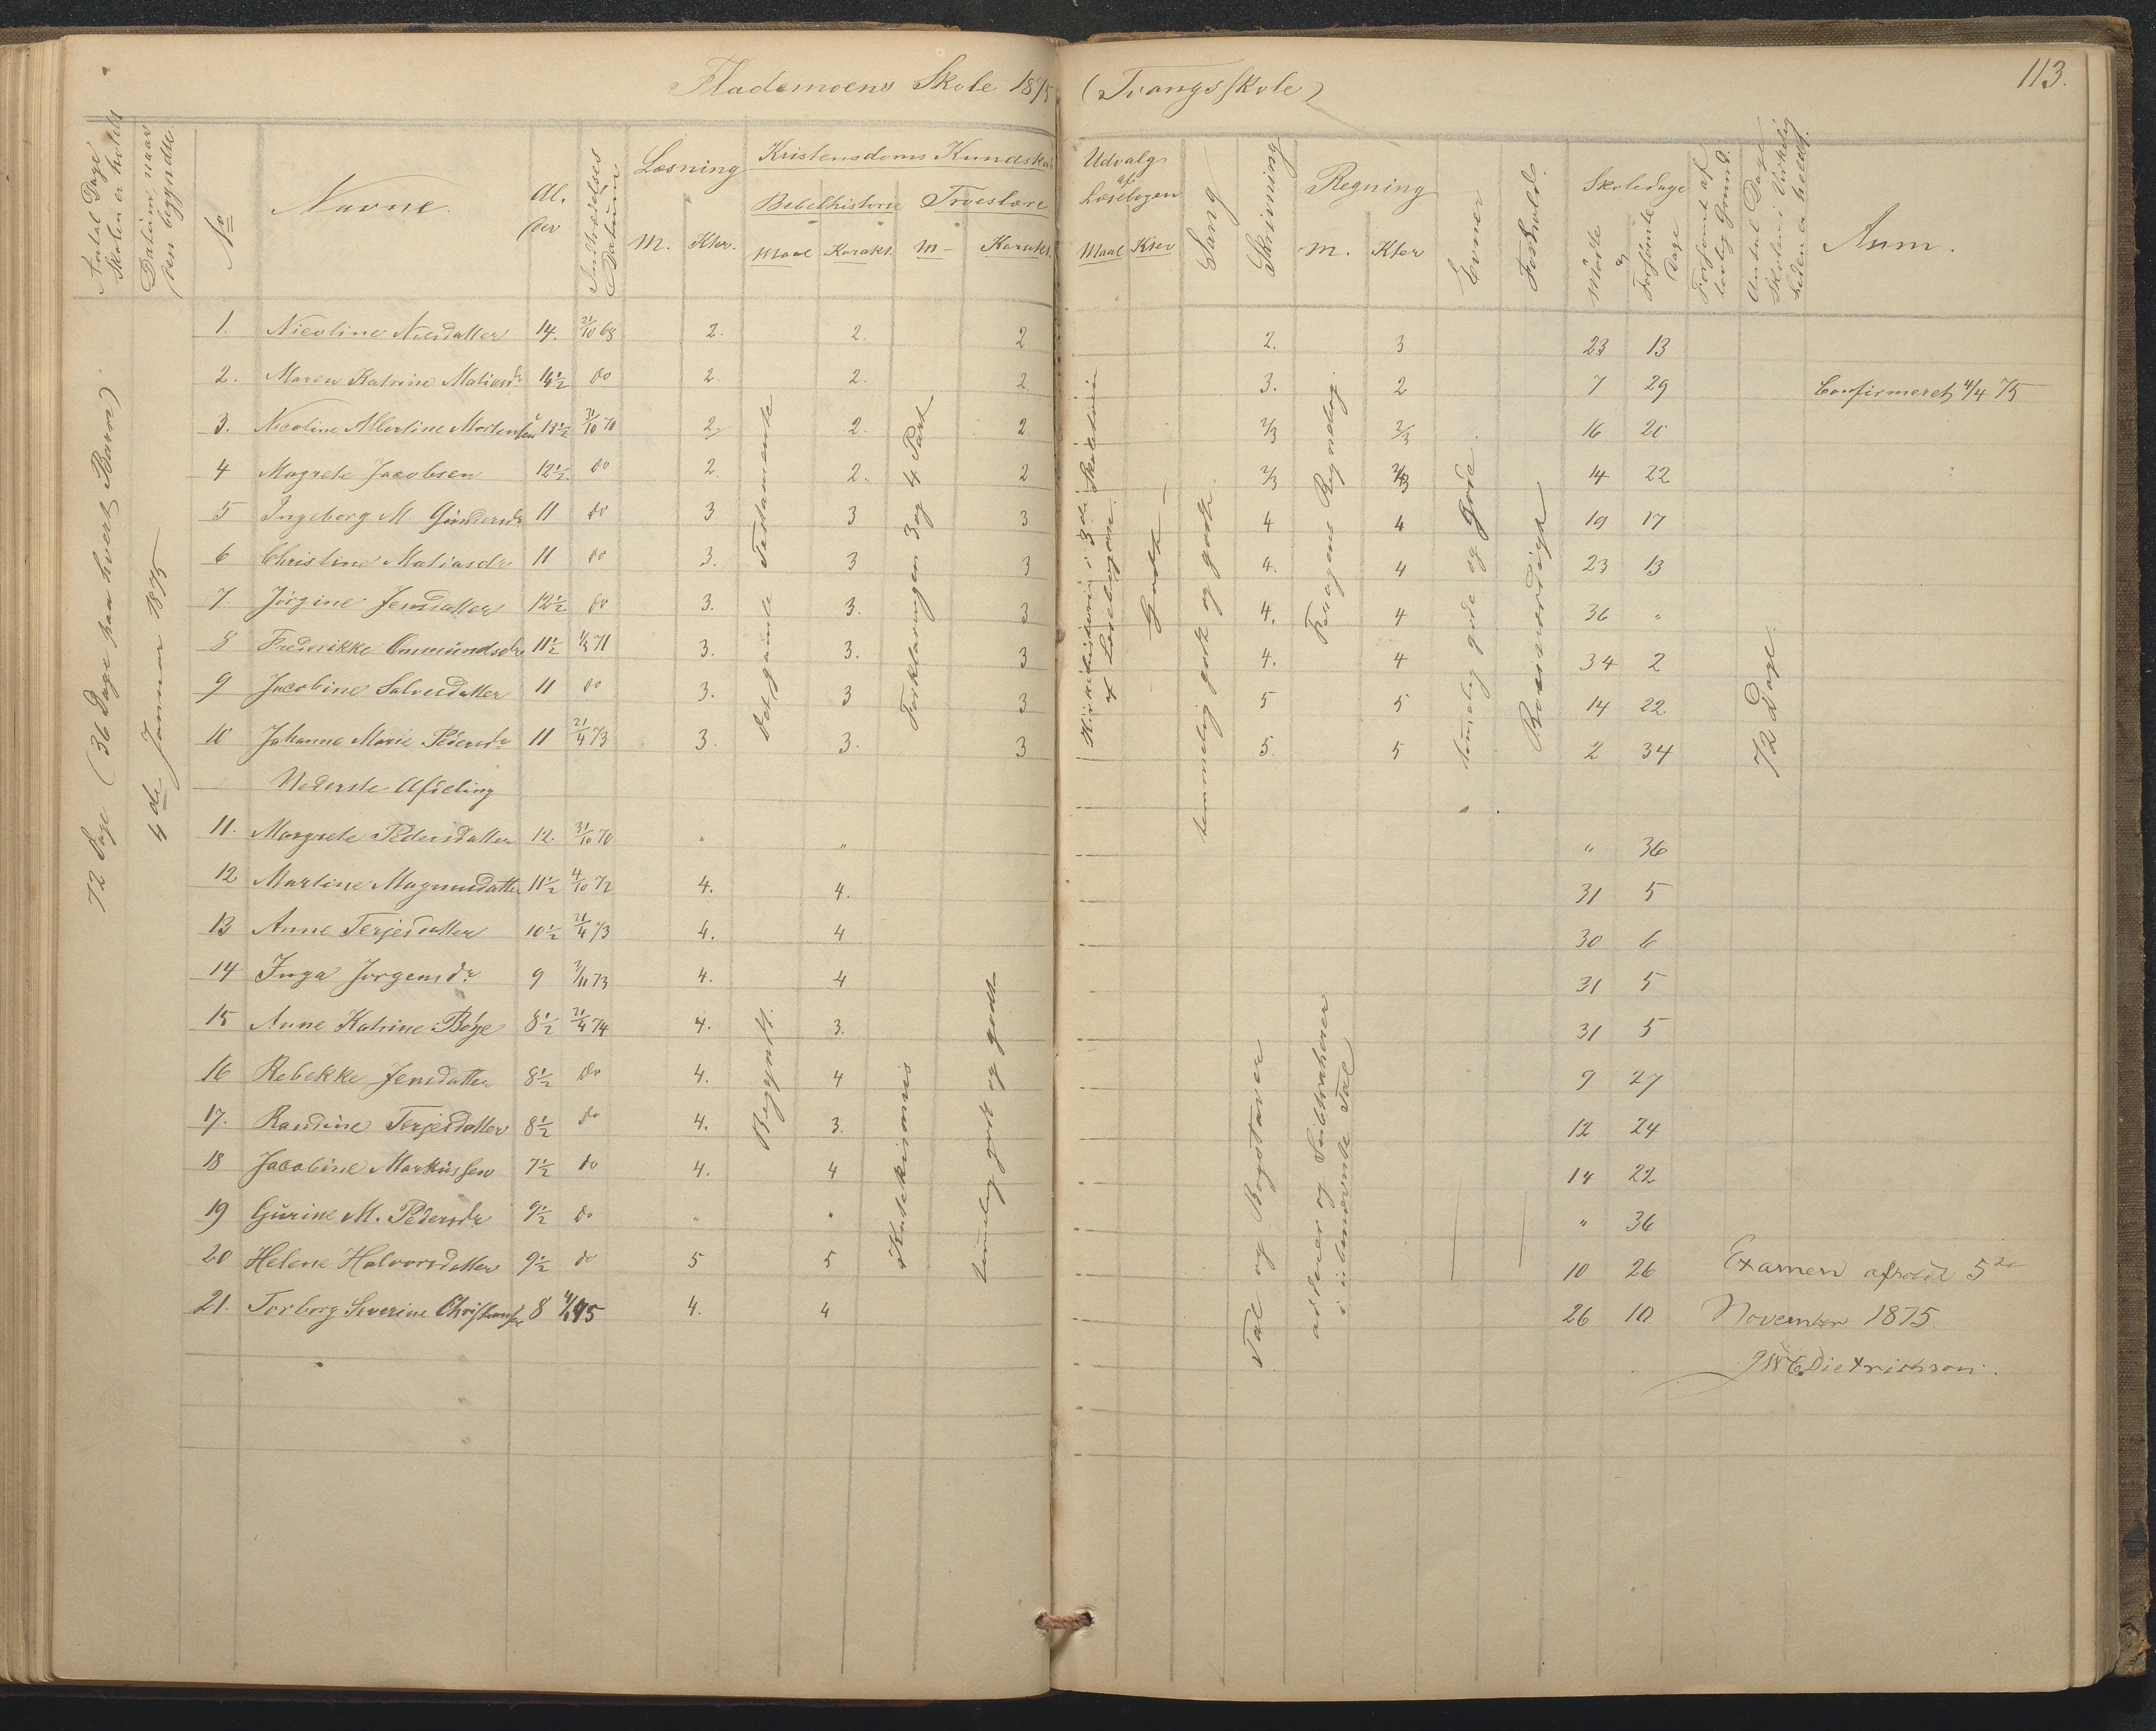 Flademoens Skole 1875 (Tvangsskole)
113.
Antal Dage Skolen er holdt
Datum, naar den begyndte
No
Navne.
Alder
Indtrædelses Datum
Læsning
M. Kter.
Kristendoms Kundskab
Bibelhistorie
Maal Karakt.
Troeslære
M Karakt.
Udvalg af Læsebogen
Maal Kter
Sang
Skrivning
Regning
M. Kter
Evner
Forhold.
Skoledage
Mødte og Forsømte Dage
Forsømt af lovlig Grund.
Antal Dage Skolen i Virkeligheden er holdt.
Anm.
72 Dage (36 Dage paa hvert Barn)
4de Januar 1875
1. Nicoline Nilsdatter 14. 21/10 68 2. 2. 2 2. 3 23 13
2. Maren Katrine Matiasdr 14½ do 2. 2. 2. 3. 2 7 29 Confirmeret 4/4 75
3. Nicoline Albertine Mortensen 13½ 31/10 70 2. 2. 2 2/3 2/3 16 20
4 Magrete Jacobsen 12½ do 2. 2. 2 2/3 2/3 14 22
5 Ingeborg M. Gundersdr 11 do 3 3 3 4 4 19 17
6 Christine Matiasdr 11 do 3. 3 3 4. 4 23 13
7 Jörgine Jensdatter 12½ do 3. 3. 3 4. 4 36 "
8 Frederikke Ommundsdr 11½ 1/5 71 3. 3. 3 4. 4 34 2
9 Jacobine Salvesdatter 11 do 3. 3 3 5 5 14 22
10 Johanne Marie Pedersdr 11 21/4 73 3. 3. 3 5. 5 2 34
Det gamle Testamente
Forklaringen 3 og 4 Part
Kirkehistorie i 3de Skoletrin af Læsebogen.
Godt
temmelig godt og godt.
Forogene Regnedag.
temmelig gode og gode
Rosværdigt
72 Dage.
Nederste Afdeling
11. Margrete Pedersdatter 12. 31/10 70 " " " 36
12 Martine Magnusdatter 11½ 4/10 72 4. 4. 31 5
13 Anne Terjesdatter 10½ 21/4 73 4. 4 30 6
14 Inga Jorgensdr 9 3/11 73 4. 4 31 5
15 Anne Katrine Böÿe 8½ 21/4 74 4. 3. 31 5
16 Rebekke Jensdatter 8½ do 4. 4 9 27
17. Randine Terjesdatter 8½ do 4. 3. 12 24
18 Jacobine Markussen 7½ do 4. 4 14 22
19 Gurine M. Pedersdr 9½ do " " " 36
20 Helene Halvorsdatter 9½ do 5 5 10 26
21. Torborg Severine Christiansdr 8 4/1 75 4. 4 26 10
Begyndt.
Katekismus
temmelig godt og godt
Tal og Bogstaver
adderer og Subtraherer i ubenævnte Tal
Examen afholdt 5te
November 1875.
JWC Dietrichson.